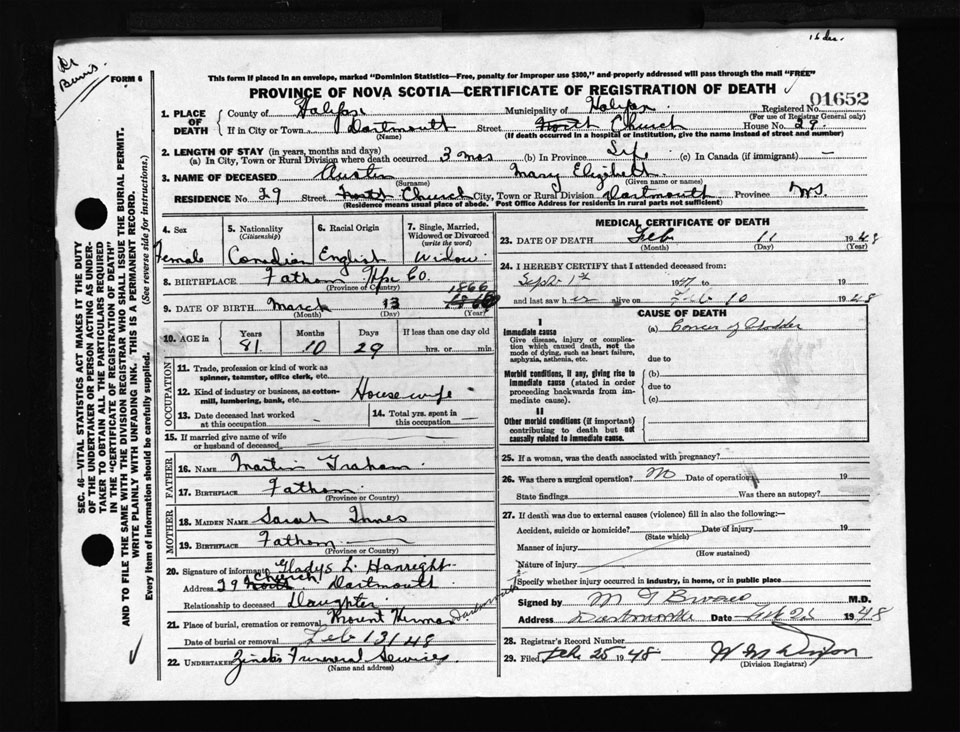 16 dec.
Dr Burris.
FORM 6
This form if placed in an envelope, marked "Dominion Statistics—Free, penalty for improper use $300," and properly addressed will pass through the mail "FREE"
PROVINCE OF NOVA SCOTIA—CERTIFICATE OF REGISTRATION OF DEATH
1. PLACE OF DEATH
County of Halifax Municipality of Halifax Registered No. 01652
(For use of Registrar General only)
If in City or Town Dartmouth Street North Church House No. 29
(Name) (If death occurred in a hospital or institution, give the name instead of street and number)
2. LENGTH OF STAY (in years, months and days)
(a) In City, Town or Rural Division where death occurred 3 mos (b) In Province Life (c) In Canada (if immigrant) —
3. NAME OF DECEASED Austin Mary Elizibeth
(Surname) (Given name or names)
RESIDENCE No. 29 Street North Church City, Town or Rural Division Dartmouth Province N.S.
(Residence means usual place of abode. Post Office Address for residents in rural parts not sufficient)
4. Sex Female
5. Nationality (Citizenship) Canadian
6. Racial Origin English
7. Single, Married, Widowed or Divorced (write the word) Widow
8. BIRTHPLACE Hfx Co.
(Province or Country)
9. DATE OF BIRTH March 13 1866
(Month) (Day) (Year)
10. AGE in Years 81 Months 10 Days 29 If less than one day old hrs. or min.
OCCUPATION
11. Trade, profession or kind of work as spinner, teamster, office clerk, etc.
12. Kind of industry or business, as cotton-mill, lumbering, bank, etc. Housewife
13. Date deceased last worked at this occupation
14. Total yrs. spent in this occupation
15. If married give name of wife or husband of deceased
FATHER
16. NAME Martin Graham
17. BIRTHPLACE
(Province or Country)
MOTHER
18. MAIDEN NAME Sarah Innes
19. BIRTHPLACE
(Province or Country)
20. Signature of informant Gladys L. Hanright
Address 29 North Church Dartmouth
Relationship to deceased Daughter
21. Place of burial, cremation or removal Mount Herman Dartmouth
Date of burial or removal Feb 13/48
22. UNDERTAKER Funeral Services.
(Name and address)
MEDICAL CERTIFICATE OF DEATH
23. DATE OF DEATH Feb 11 1948
(Month) (Day) (Year)
24. I HEREBY CERTIFY that I attended deceased from:
Sept 1st 1947 to
and last saw her alive on Feb 10 1948
CAUSE OF DEATH
I
Immediate cause
Give disease, injury or complication which caused death, not the mode of dying, such as heart failure, asphyxia, asthenia, etc.
(a) Cancer of bladder
due to
Morbid conditions, if any, giving rise to immediate cause (stated in order proceeding backwards from immediate cause).
(b)
due to
(c)
II
Other morbid conditions (if important) contributing to death but not causally related to immediate cause.
25. If a woman, was the death associated with pregnancy?
26. Was there a surgical operation? No Date of operation 19
State findings Was there an autopsy?
27. If death was due to external causes (violence) fill in also the following:—
Accident, suicide or homicide? Date of injury 19
(State which)
Manner of injury
(How sustained)
Nature of injury
Specify whether injury occurred in industry, in home, or in public place
Signed by M.D.
Address Dartmouth Date 1948
28. Registrar's Record Number
29. Filed Feb. 25 1948
(Division Registrar)
SEC. 46—VITAL STATISTICS ACT MAKES IT THE DUTY
OF THE UNDERTAKER OR PERSON ACTING AS UNDER-
TAKER TO OBTAIN ALL THE PARTICULARS REQUIRED
IN THE "CERTIFICATE OF REGISTRATION OF DEATH"
AND TO FILE THE SAME WITH THE DIVISION REGISTRAR WHO SHALL ISSUE THE BURIAL PERMIT.
WRITE PLAINLY WITH UNFADING INK. THIS IS A PERMANENT RECORD.
Every item of information should be carefully supplied. (See reverse side for instructions.)